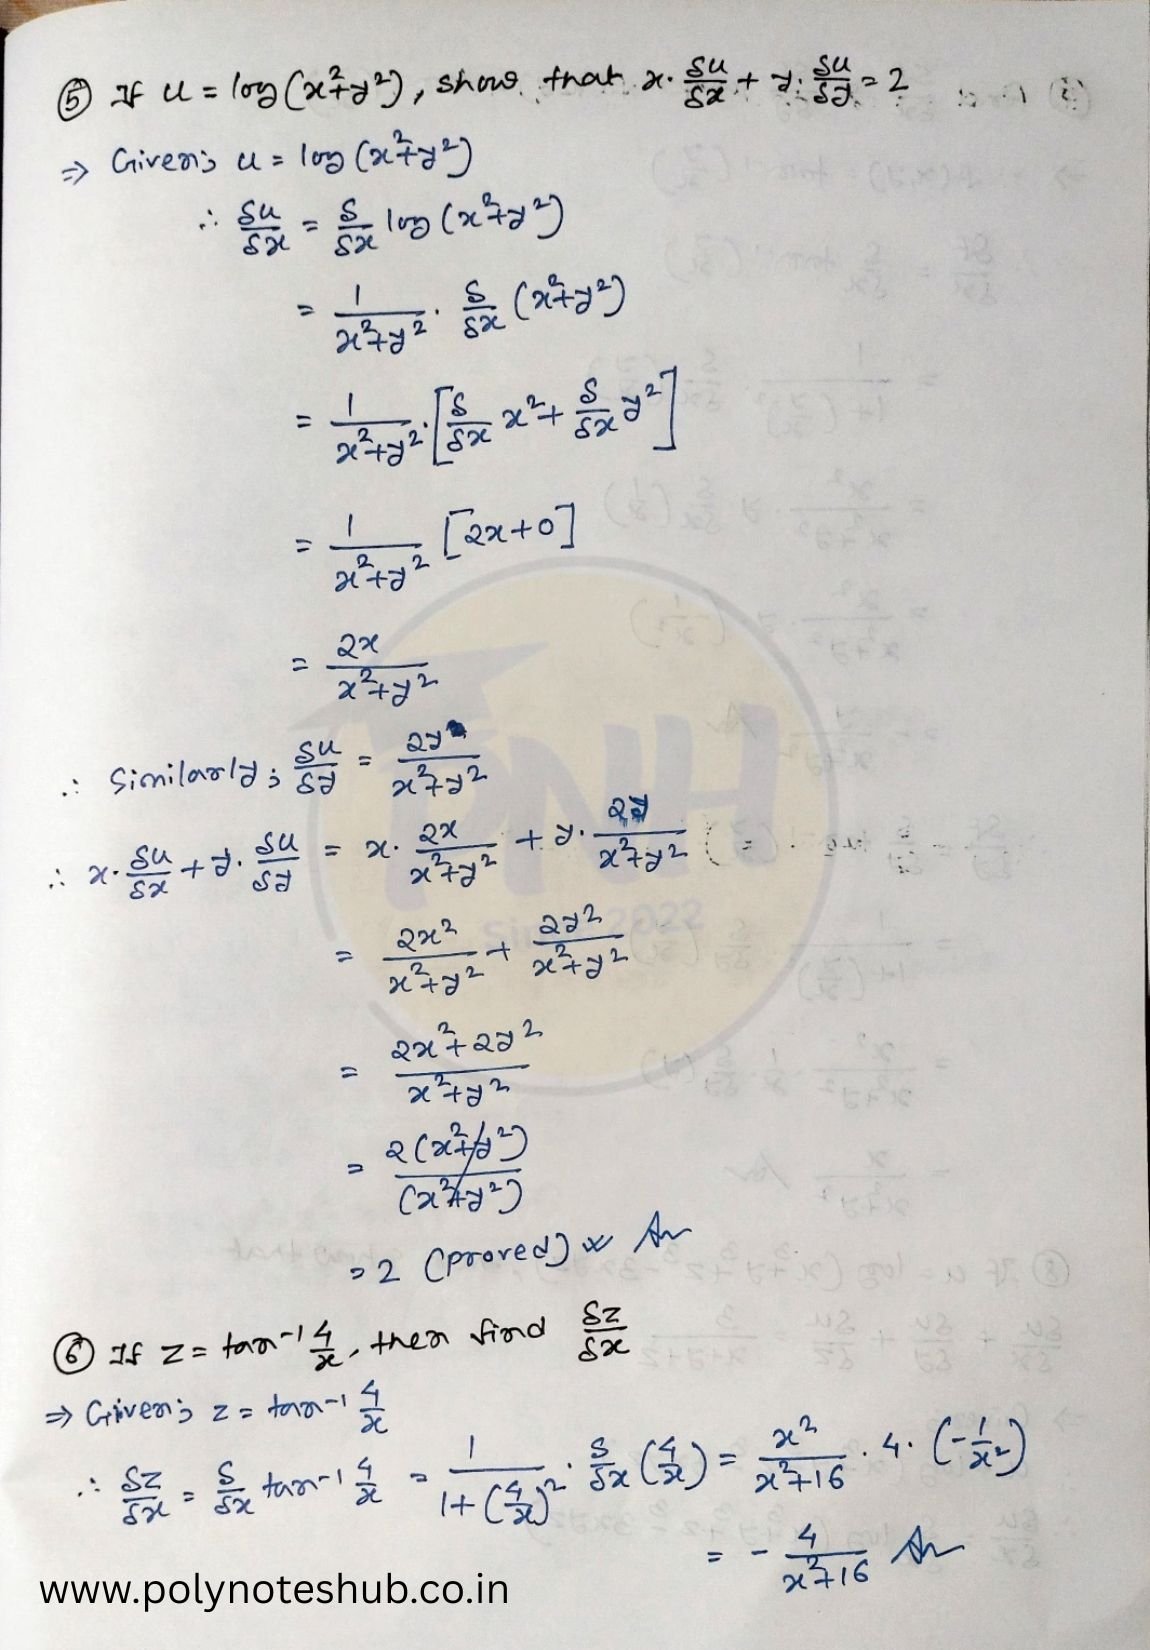 ⑤ If u = log(x²+y²), show that x. δu/δx + y. δu/δy = 2
⇒ Given; u = log(x²+y²)
∴ δu/δx = δ/δx log(x²+y²)
= 1/(x²+y²) . δ/δx (x²+y²)
= 1/(x²+y²) . [δ/δx x² + δ/δx y²]
= 1/(x²+y²) [2x+0]
= 2x/(x²+y²)
∴ Similarly; δu/δy = 2y/(x²+y²)
∴ x. δu/δx + y. δu/δy = x. 2x/(x²+y²) + y. 2y/(x²+y²)
= 2x²/(x²+y²) + 2y²/(x²+y²)
= (2x²+2y²)/(x²+y²)
= 2(x²+y²)/(x²+y²)
= 2 (proved) An
⑥ If z = tan⁻¹ 4/x, then find δz/δx
⇒ Given; z = tan⁻¹ 4/x
∴ δz/δx = δ/δx tan⁻¹ 4/x = 1/(1+(4/x)²) . δ/δx (4/x) = x²/(x²+16) . 4. (-1/x²)
= - 4/(x²+16) An
PNH
Since 2022
www.polynoteshub.co.in